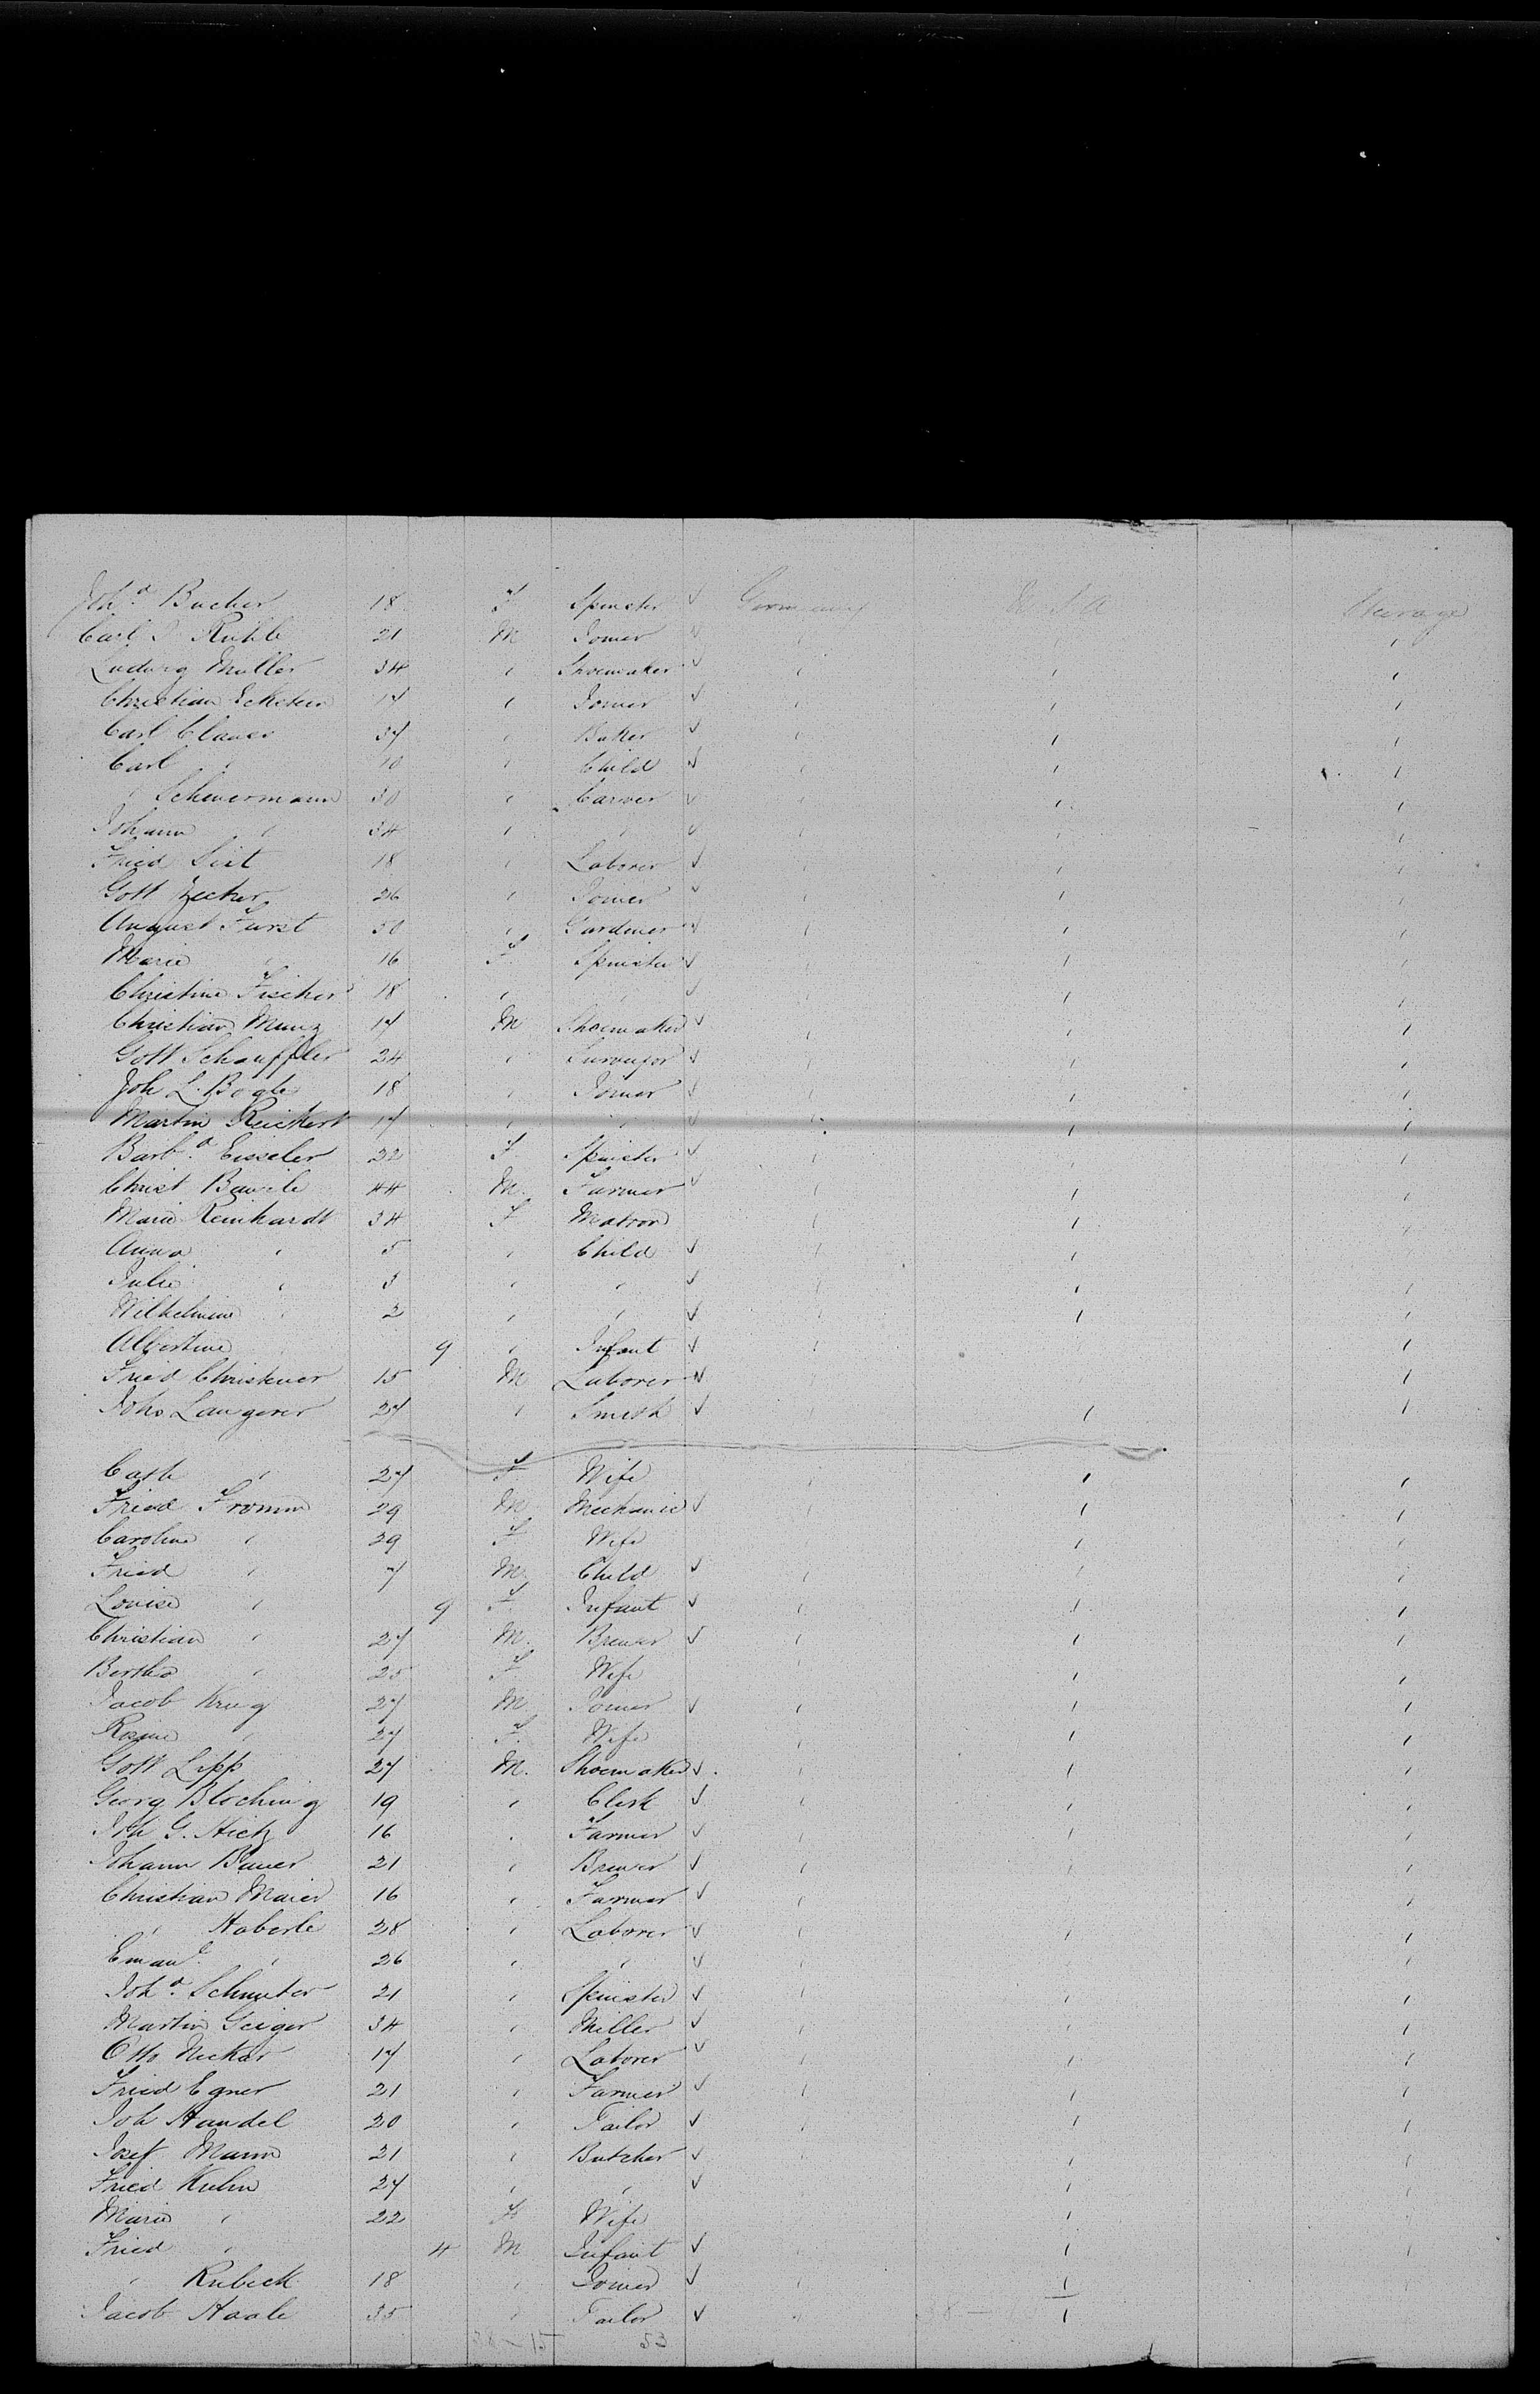 Joh.a Bucher 18 F Spinster ✓ Germany U. S. A Steerage
Carl Ruhle 21 M Joiner ✓ " " "
Ludwig Muller 34 " Shoemaker ✓ " " "
Christian Eckstein 17 " Joiner ✓ " " "
Carl Clauss 37 " Baker ✓ " " "
Carl " 10 " Child ✓ " " "
" Scheuermann 30 " Carver ✓ " " "
Johann " 34 " " ✓ " " "
Fried 18 " Laborer ✓ " " "
Gott Zecher 26 " Joiner ✓ " " "
August Furst 50 " Gardener ✓ " " "
Marie " 16 F Spinster ✓ " " "
Christine Fischer 18 " " ✓ " " "
Christian Munz 17 M Shoemaker ✓ " " "
Gott Schauffler 24 " Surveyor ✓ " " "
Joh L. Bogle 18 " Joiner ✓ " " "
Martin Reichert 17 " " ✓ " " "
Barb.a Eisseler 22 F Spinster ✓ " " "
Christ Bauerle 44 M Farmer ✓ " " "
Marie Reinhardt 34 F Matron " " "
Anna " 5 " Child ✓ " " "
Julie " 3 " " ✓ " " "
Wilhelmine " 2 " " ✓ " " "
Albertine " 9 " Infant ✓ " "
Fried Christener 15 M Laborer ✓ " "
Johs Laugerer 27 " Smith ✓ " " "
Cath " 27 F Wife " " "
Fried Fromm 29 M Mechanic ✓ " " "
Caroline " 29 F Wife " " "
Fried " 7 M Child ✓ " " "
Louise " 9 F Infant ✓ " " "
Christian " 27 M. Brewer ✓ " " "
Bertha " 25 F Wife " " "
Jacob Krug 27 M Joiner ✓ " " "
Rosine " 27 F. Wife " " "
Gott Lipp 27 M. Shoemaker ✓ " " "
Georg Bloching 19 " Clerk ✓ " " "
Joh G. Hietz 16 " Farmer ✓ " " "
Johann Bauer 21 " Brewer ✓ " " "
Christian Maier 16 " Farmer ✓ " " "
" Haberle 28 " Laborer ✓ " " "
Eman.l " 26 " " ✓ " " "
Joh.a Schnyter 21 " Spinster ✓ " " "
Martin Geiger 34 " Miller ✓ " " "
Otto Neckar 17 " Laborer ✓ " " "
Fried Egner 21 " Farmer ✓ " " "
Joh Handel 20 " Tailor ✓ " " "
Josef Mann 21 " Butcher ✓ " " "
Fried Kuhn 27 " " ✓ " " "
Marie " 22 F Wife " "
Fried " 4 M Infant ✓ " " "
" Rubeck 18 " Joiner ✓ " " "
Jacob Haale 35 " Tailor ✓ " "
38 – 15 53